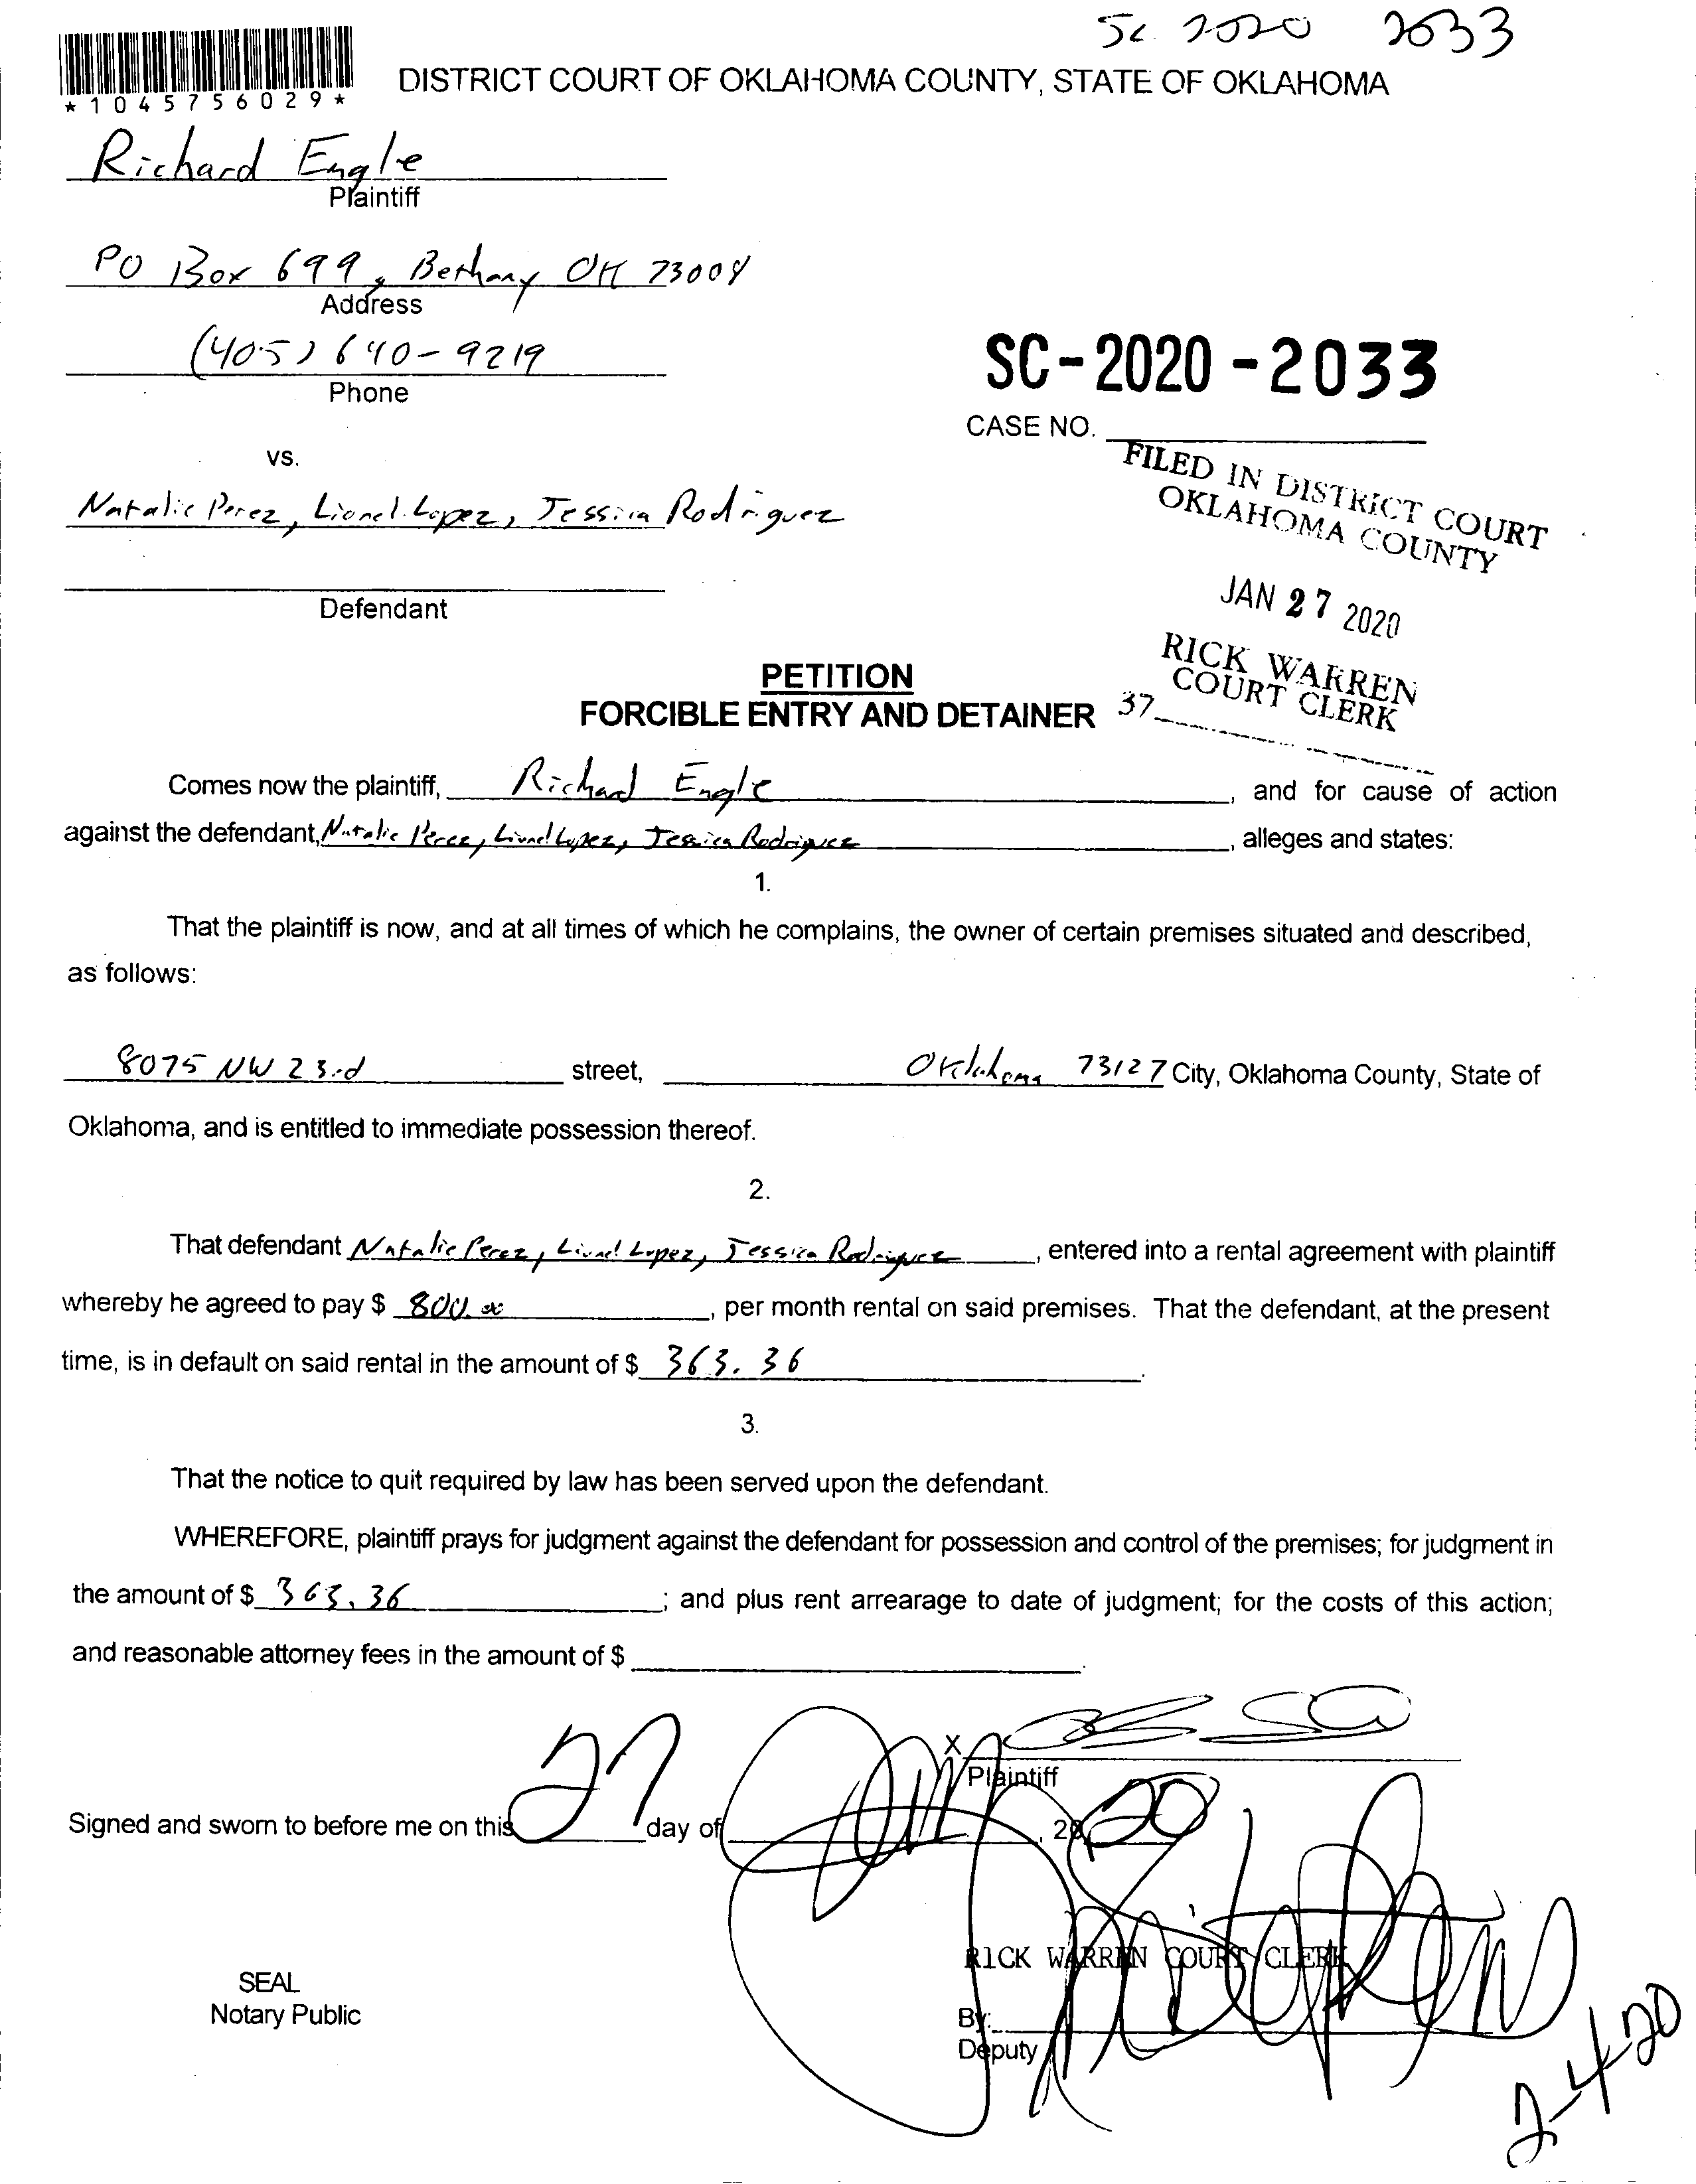 SC 2020 2033
*1045756029*
DISTRICT COURT OF OKLAHOMA COUNTY, STATE OF OKLAHOMA
Richard Engle
Plaintiff
PO Box 699, Bethany OK 73008
Address
(405) 640-9219
Phone
SC-2020-2033
CASE NO.
vs.
Natalie Perez, Lionel Lopez, Jessica Rodriguez
Defendant
FILED IN DISTRICT COURT
OKLAHOMA COUNTY
JAN 27 2020
RICK WARREN
COURT CLERK
37
PETITION
FORCIBLE ENTRY AND DETAINER
Comes now the plaintiff, Richard Engle, and for cause of action
against the defendant, Natalie Perez, Lionel Lopez, Jessica Rodriguez, alleges and states:
1.
That the plaintiff is now, and at all times of which he complains, the owner of certain premises situated and described,
as follows:
8075 NW 23rd street, Oklahoma 73127 City, Oklahoma County, State of
Oklahoma, and is entitled to immediate possession thereof.
2.
That defendant Natalie Perez, Lionel Lopez, Jessica Rodriguez, entered into a rental agreement with plaintiff
whereby he agreed to pay $ 800.00, per month rental on said premises. That the defendant, at the present
time, is in default on said rental in the amount of $ 363.36.
3.
That the notice to quit required by law has been served upon the defendant.
WHEREFORE, plaintiff prays for judgment against the defendant for possession and control of the premises; for judgment in
the amount of $ 363.36; and plus rent arrearage to date of judgment; for the costs of this action;
and reasonable attorney fees in the amount of $ .
X
Plaintiff
Signed and sworn to before me on this 27 day of Jan, 2020
RICK WARREN COURT CLERK
SEAL
Notary Public
By:
Deputy
2-4-20